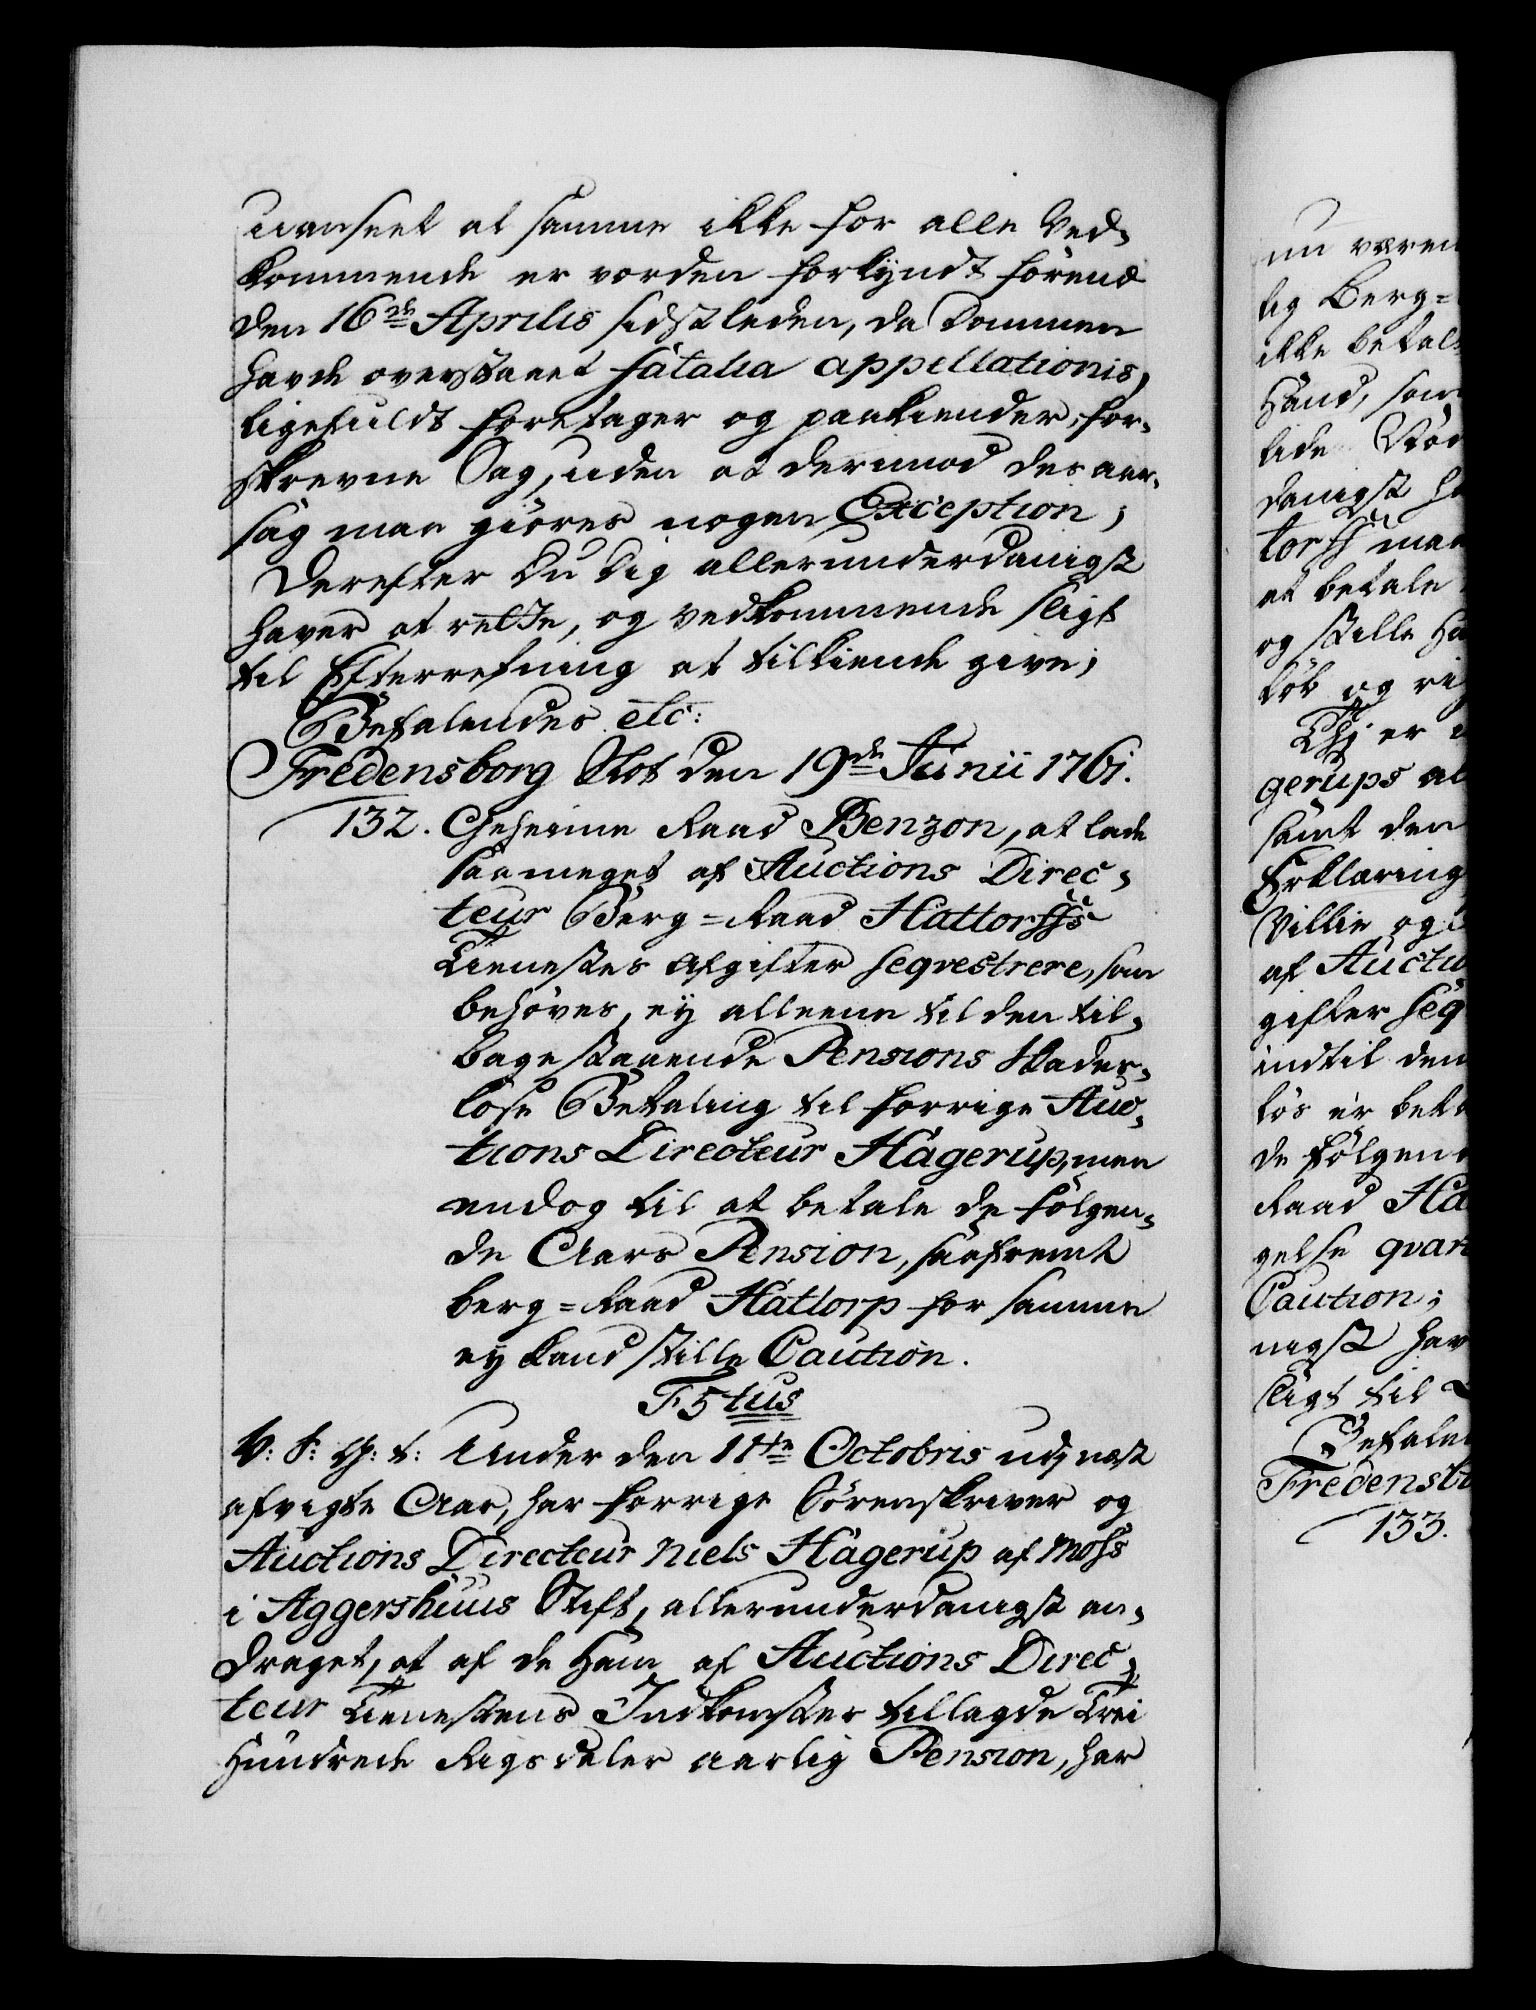 uanseet at samme ikke for alle Ved-
kommende er vorden forkyndt förend
den 16de Aprilis sidstleden, da Dommen
havde overstaaet fatalia appellationis,
ligefuldt foretager og paakiender for-
skrevne Sag, uden at derimod des aar-
sag maa giöres nogen Exception;
Derefter Du dig allerunderdanigst
haver at rette, og vedkommende sligt
til Efterretning at tilkiende give;
Befalendes etc:
Fredensborg Slot den 19de Junii 1761.
132. Geheime Raad Benzon, at lade
saa meget af Auctions Direc-
teur Berg=Raad Hattorffs
Tienestes Afgifter seqvestrere, som
behöves, ey alleene til den til-
bagestaaende Pensions skades-
löse Betaling til forrige Auc-
tions Directeur Hagerup, men
endog til at betale de fölgen-
de Aars Pension, saafremt
berg=Raad Hattorp for samme
ey kand stille Caution.
F 5tus
V: S: G: T: Under den 11te Octobris udj næst
afvigte Aar, har forrige Sörenskriver og
Auctions Directeur Niels Hagerup af Moss
i Aggershuus Stift, allerunderdanigst an-
draget, at af de Ham af Auctions Direc-
teur Tienestens Indkomster tillagde Trei
Hundrede Rigsdaler aarlig Pension, har
nu væren
lig Berg=
ikke betal
Haand, som
danigst ha
torff maa
at betale
og stille Ha
löb og ri
Thj er
gerups al
samt den
Erklæring
Villie og
af Auctio
gifter seq
indtil den
lös er beta
de fölgen
Raad Ha
gelse qvar
Caution;
nigst hav
sligt til
Befalen
Fredensb
133.